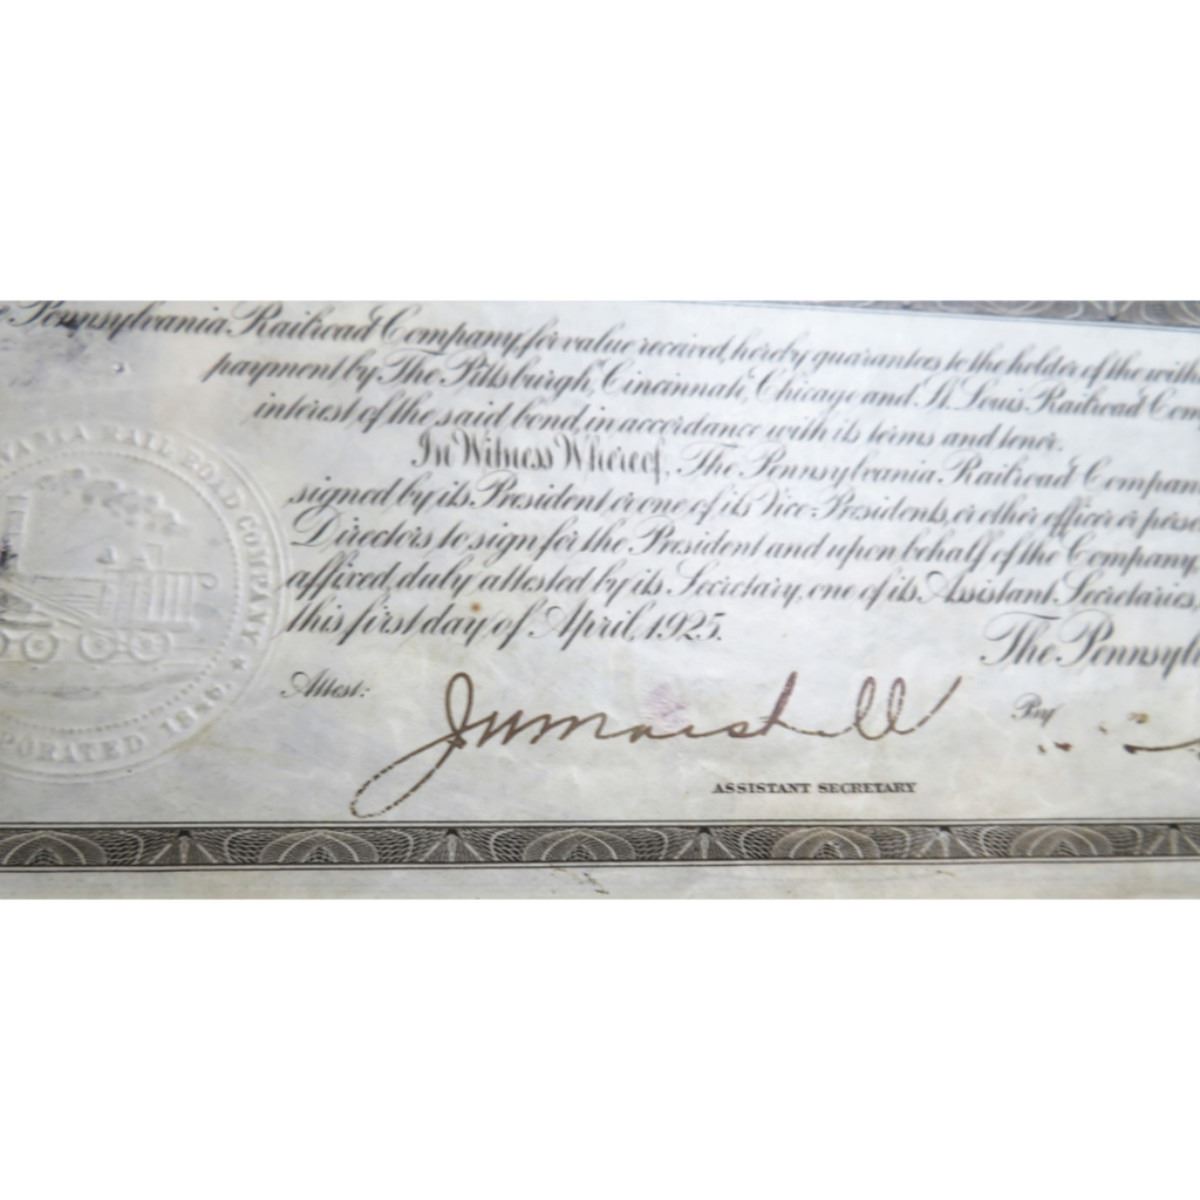 Pennsylvania Railroad Company, for value received, hereby guarantees to the holder of the
payment by The Pittsburgh, Cincinnati, Chicago and St. Louis Railroad
interest of the said bond, in accordance with its terms and tenor.
In Witness Whereof, The Pennsylvania Railroad Company
signed by its President or one of its Vice-Presidents, or other officer or
Directors to sign for the President and upon behalf of the Company
affixed, duly attested by its Secretary, one of its Assistant Secretaries
this first day of April, 1925.
The
RAIL ROAD COMPANY ★
1846.
Attest:
J W Marshall
By
ASSISTANT SECRETARY